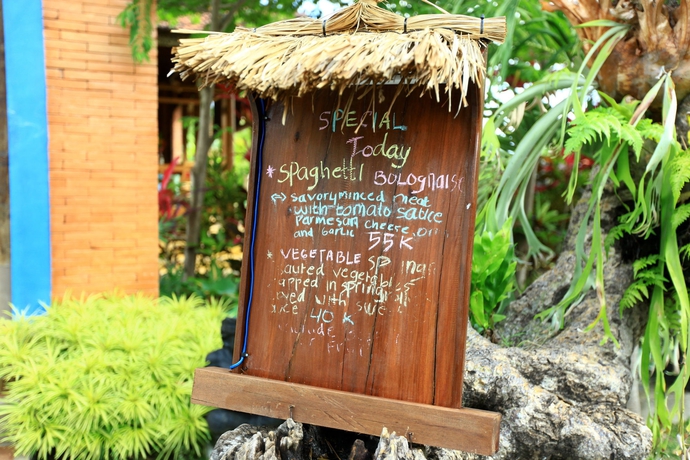 SPECIAL
Today
* SPaghetti BOLOGNaise
↔ savory minced meat
with tomato sauce
Parmesan cheese, oil
and Garlic 55K
* VEGETABLE
sauted vegetables
in springroll
with
40 K